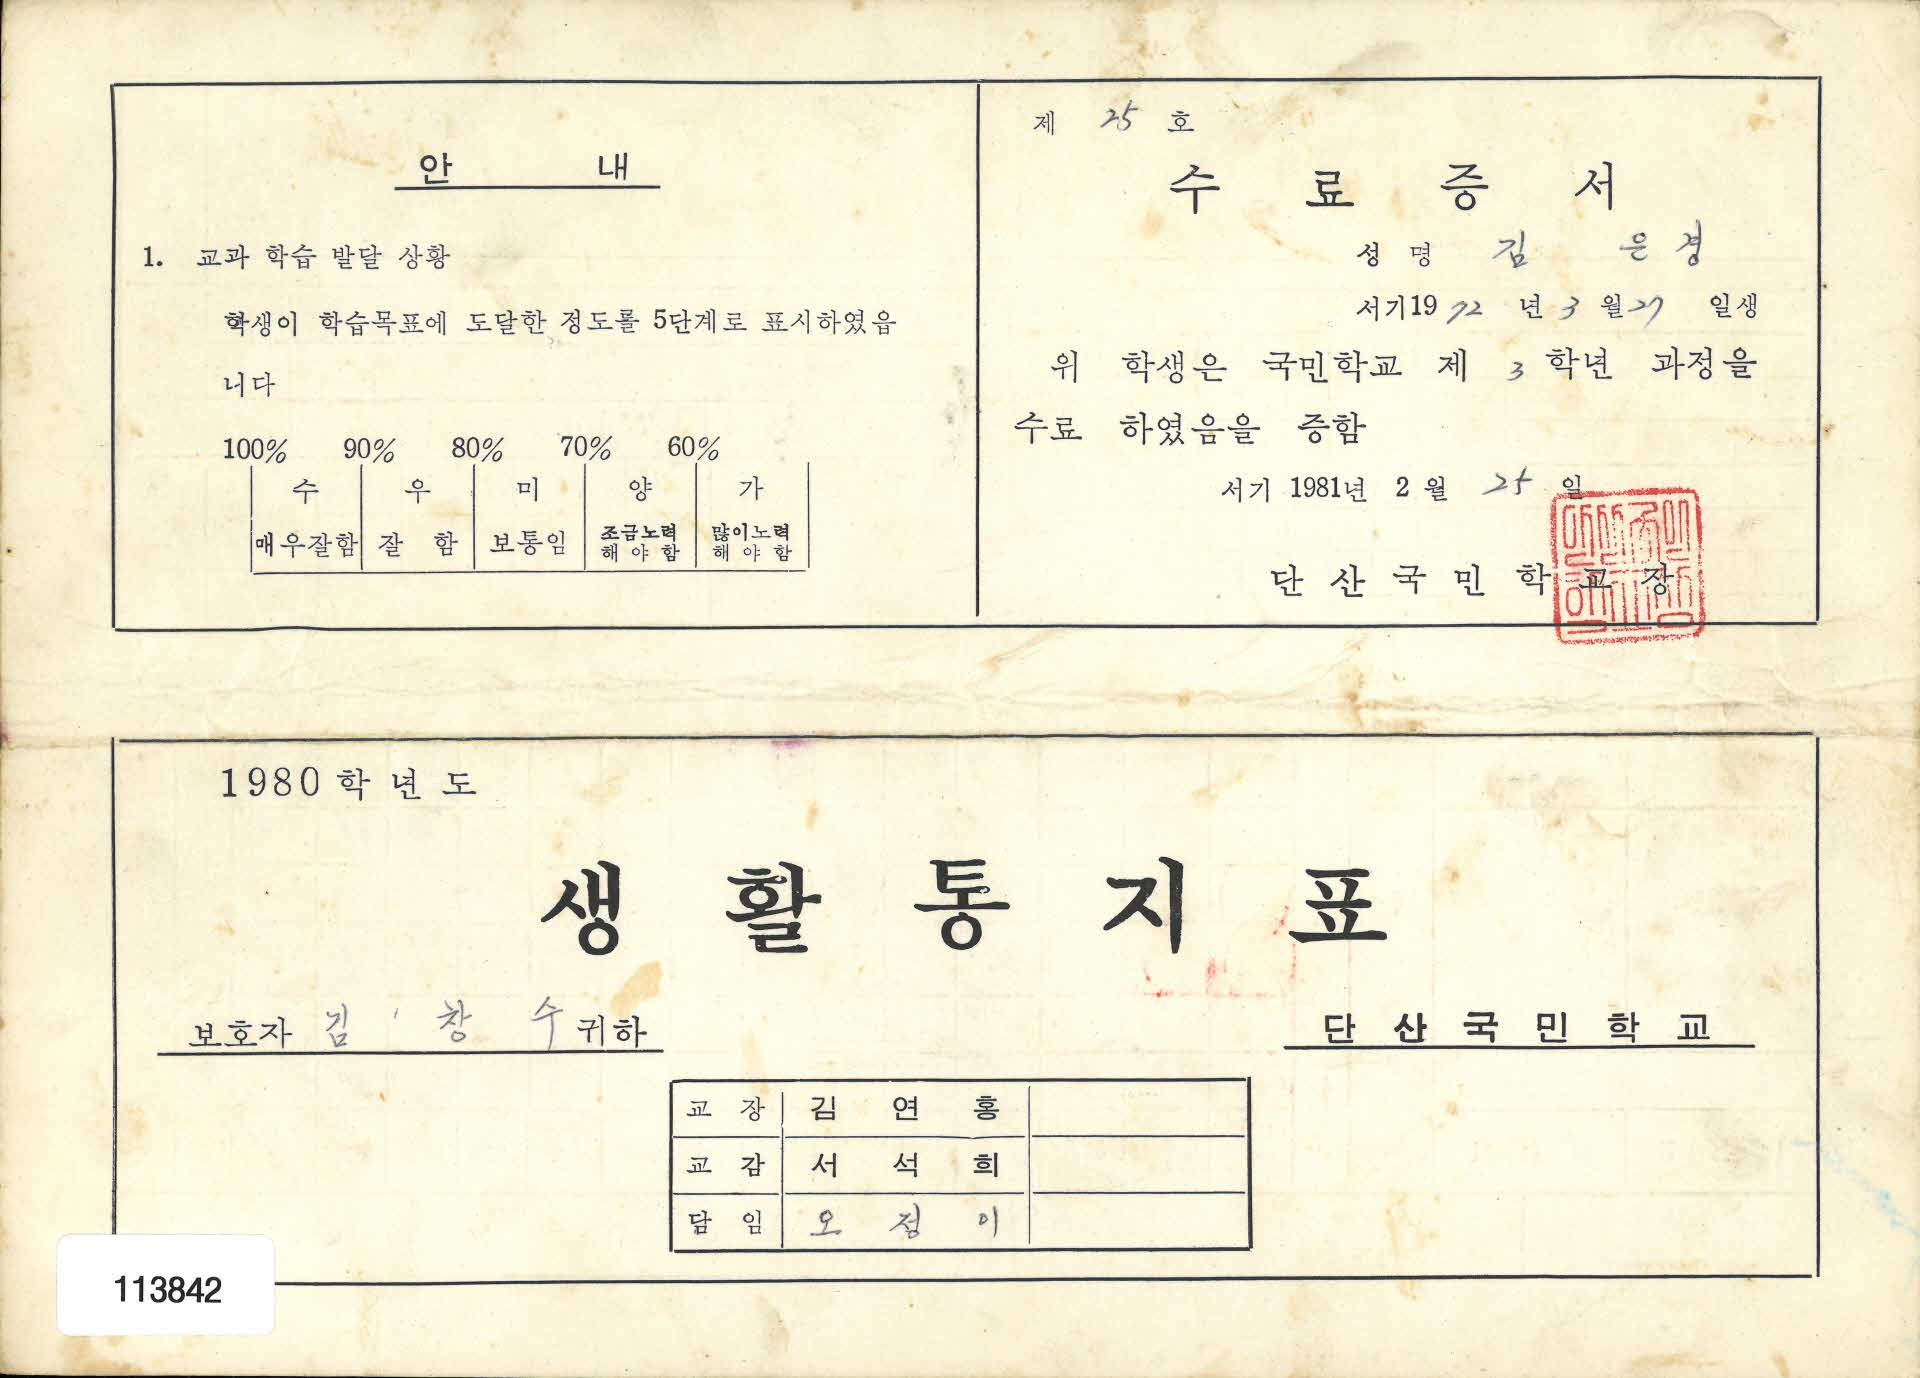 안 내
1. 교과 학습 발달 상황
학생이 학습목표에 도달한 정도를 5단계로 표시하였읍
니다
100% 90% 80% 70% 60%
수 우 미 양 가
매우잘함 잘 함 보통임 조금노력 해야함 많이노력 해야함
제 25 호
수 료 증 서
성 명 김 은경
서기19 72 년 3 월 27 일생
위 학생은 국민학교 제 3 학년 과정을
수료 하였음을 증함
서기 1981년 2 월 25 일
단 산 국 민 학 교 장
1980 학 년 도
생 활 통 지 표
보호자 김 창 수 귀하
단 산 국 민 학 교
교 장 김 연 홍
교 감 서 석 희
담 임 오 정 이
113842